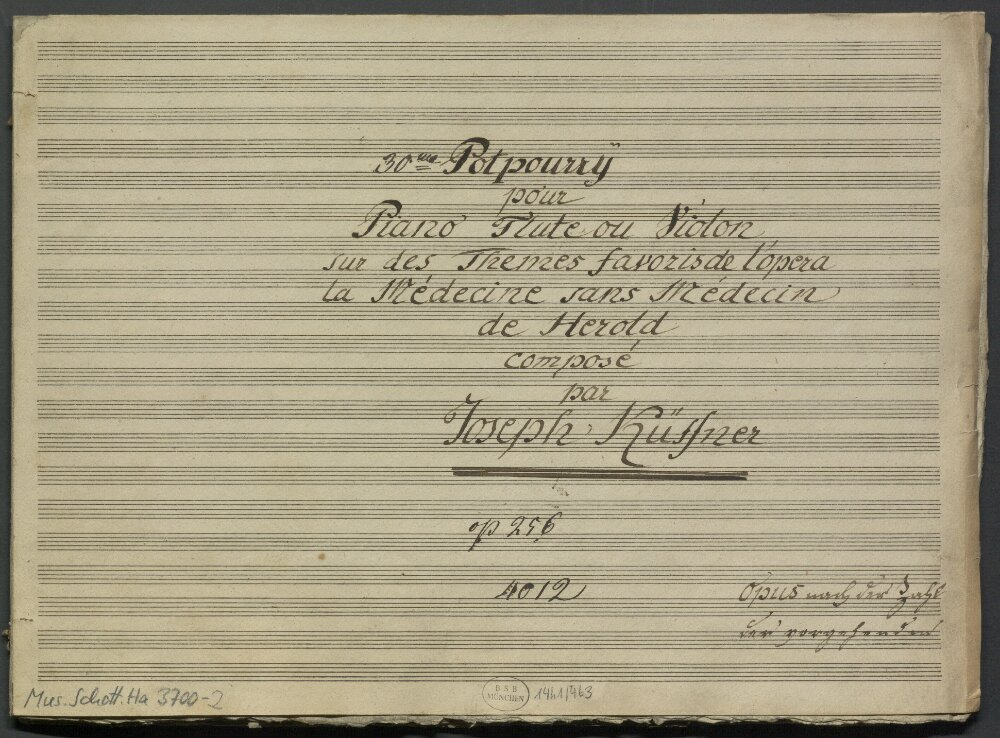 30me Potpourrÿ
pour
Piano Flute ou Violon
sur des Themes favoris de l'opera
la Médecine sans Médecin
de Herold
composé
par
Joseph Küffner
op 256
4012
Opus nach der Zahl
der vorgehenden
Mus. Schott. Ha 3700-2
BSB
MÜNCHEN
1441/463